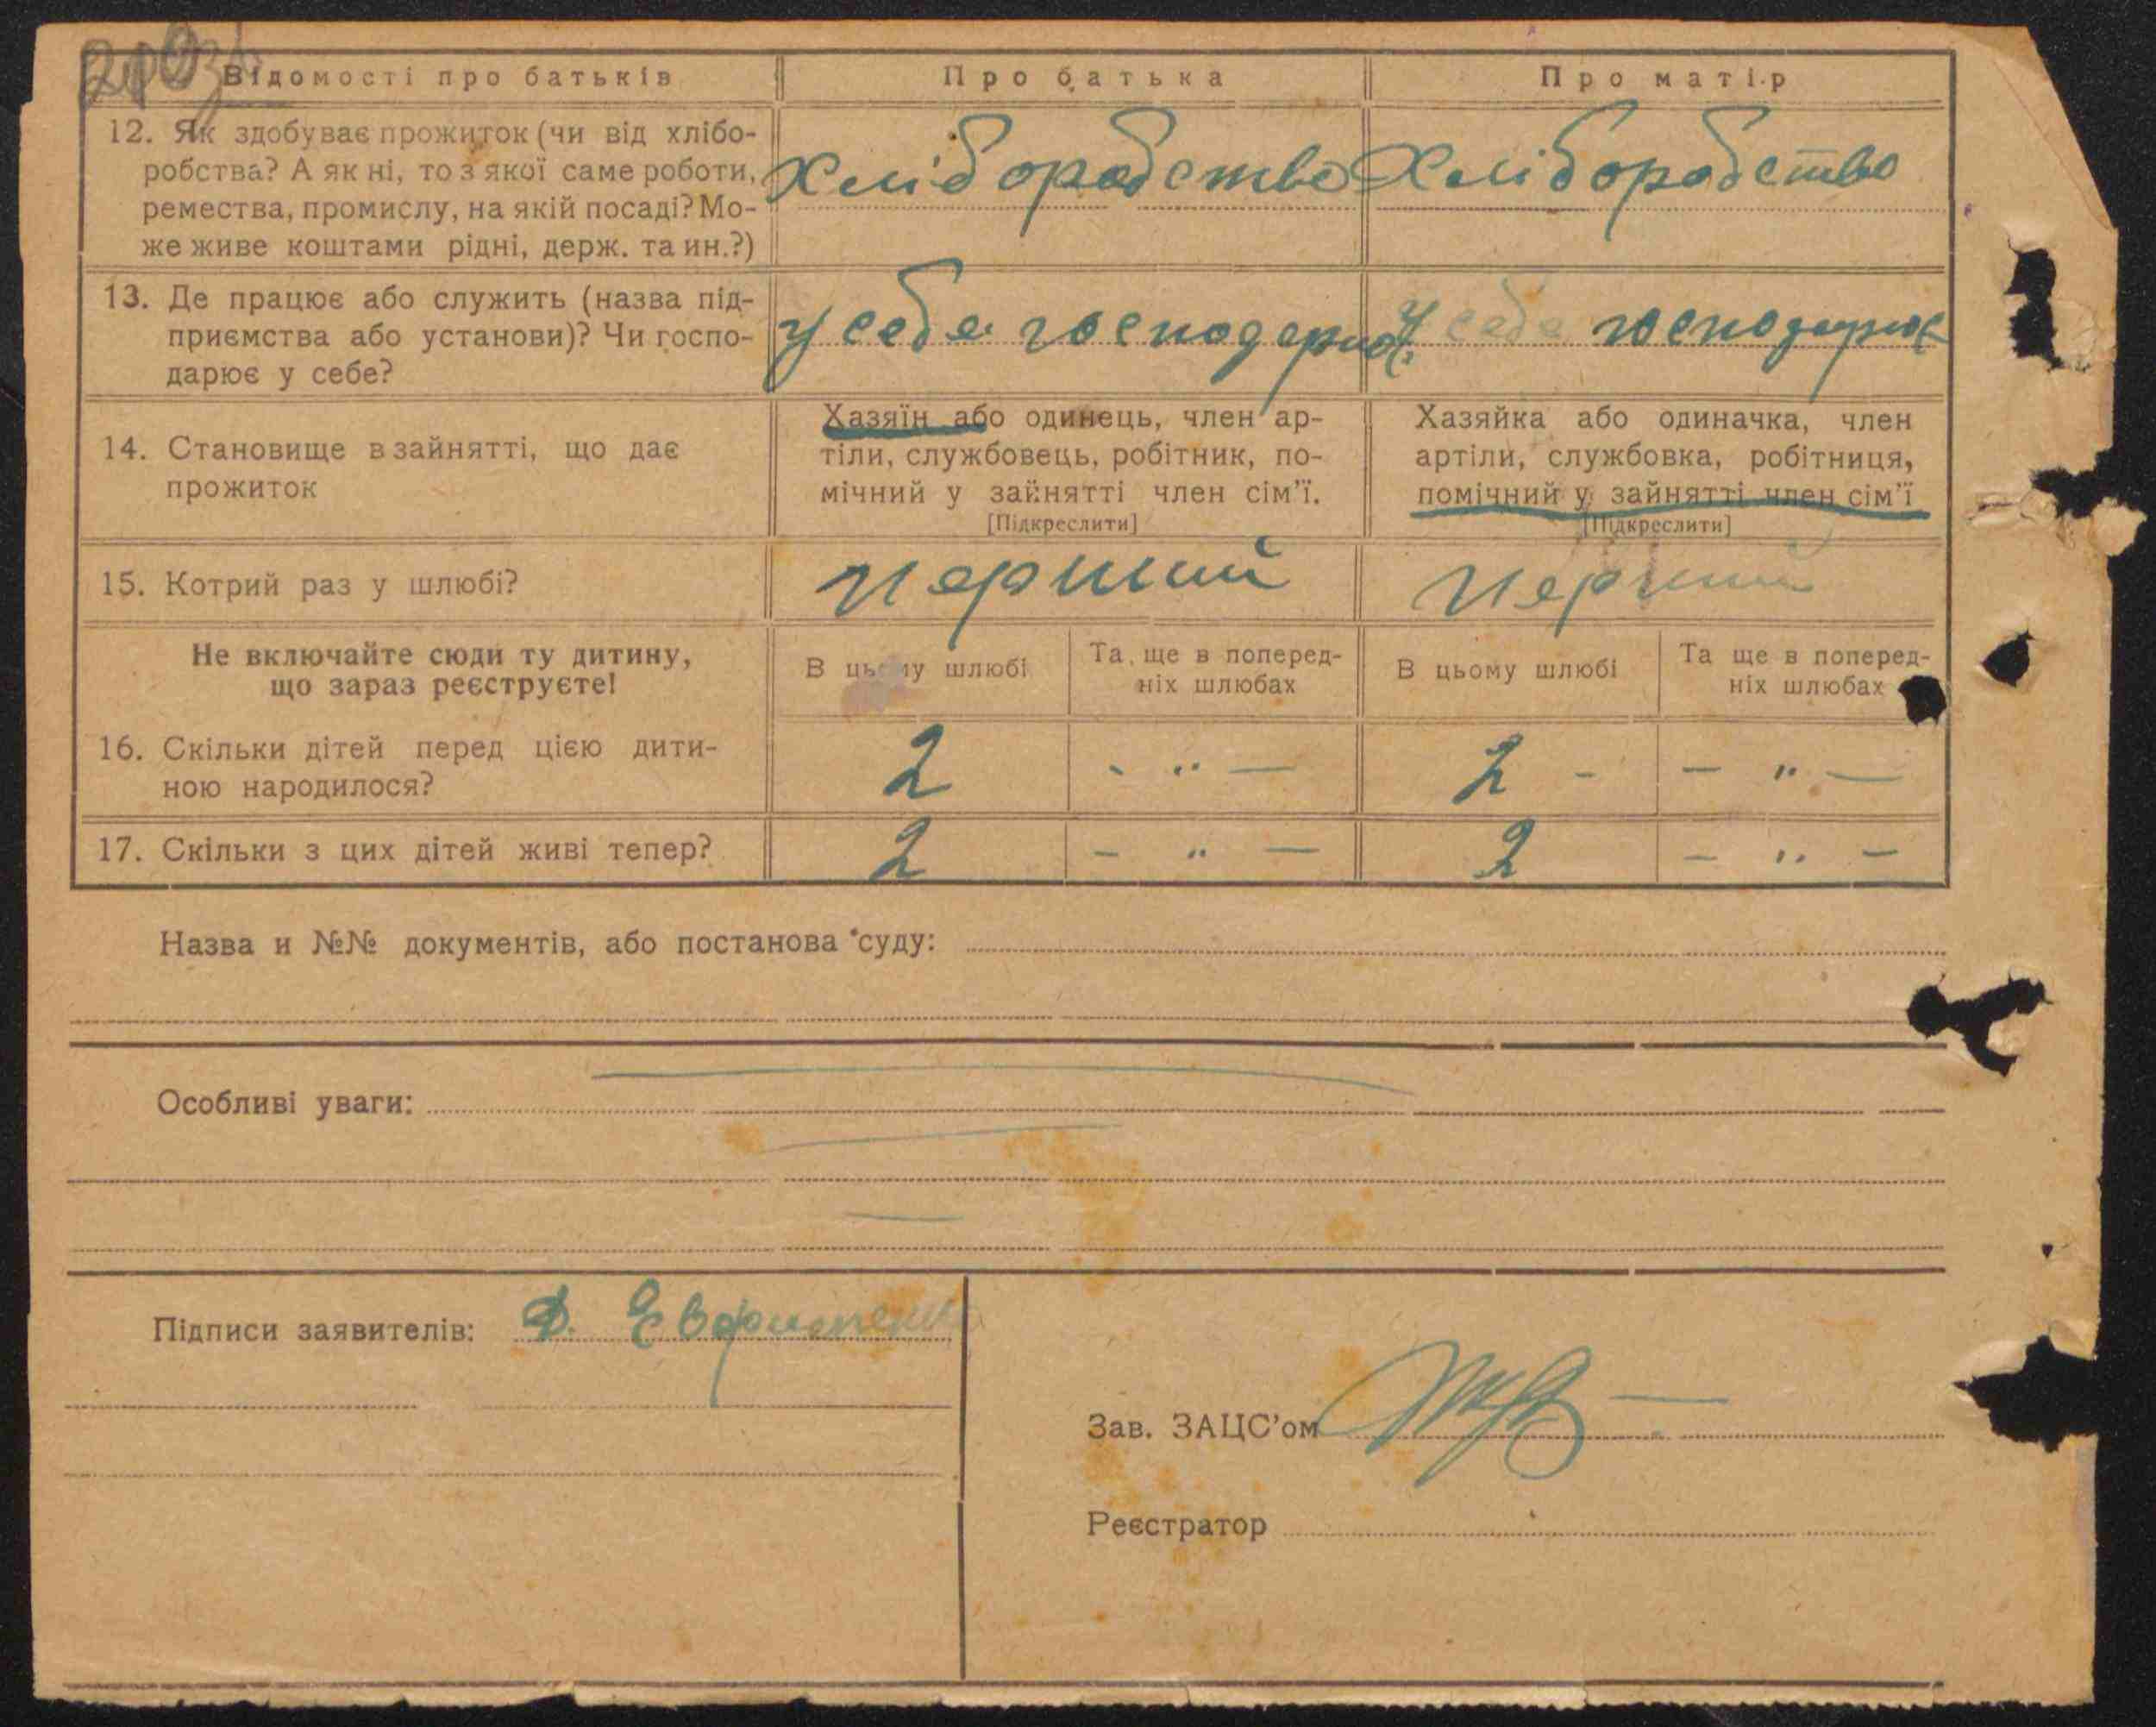 Відомості про батьків Про батька Про матір
12. Як здобуває прожиток (чи від хлібо-
робства? А як ні, то з якої саме роботи,
ремества, промислу, на якій посаді? Мо-
же живе коштами рідні, держ. та ин.?)
Хліборобство Хліборобство
13. Де працює або служить (назва під-
приємства або установи)? Чи госпо-
дарює у себе?
у себе господарює у себе господарює
14. Становище в зайнятті, що дає
прожиток
Хазяїн або одинець, член ар-
тіли, службовець, робітник, по-
мічний у зайнятті член сім'ї.
[Підкреслити]
Хазяйка або одиначка, член
артіли, службовка, робітниця,
помічний у зайнятті член сім'ї
[Підкреслити]
15. Котрий раз у шлюбі? перший перший
Не включайте сюди ту дитину,
що зараз реєструєте!
В цьому шлюбі
Та ще в поперед-
ніх шлюбах
В цьому шлюбі
Та ще в поперед-
ніх шлюбах
16. Скільки дітей перед цією дити-
ною народилося?
2 - " — 2 - — " —
17. Скільки з цих дітей живі тепер? 2 — " — 2 — " —
Назва и №№ документів, або постанова суду:
Особливі уваги:
Підписи заявителів:
Зав. ЗАЦС'ом
Реєстратор